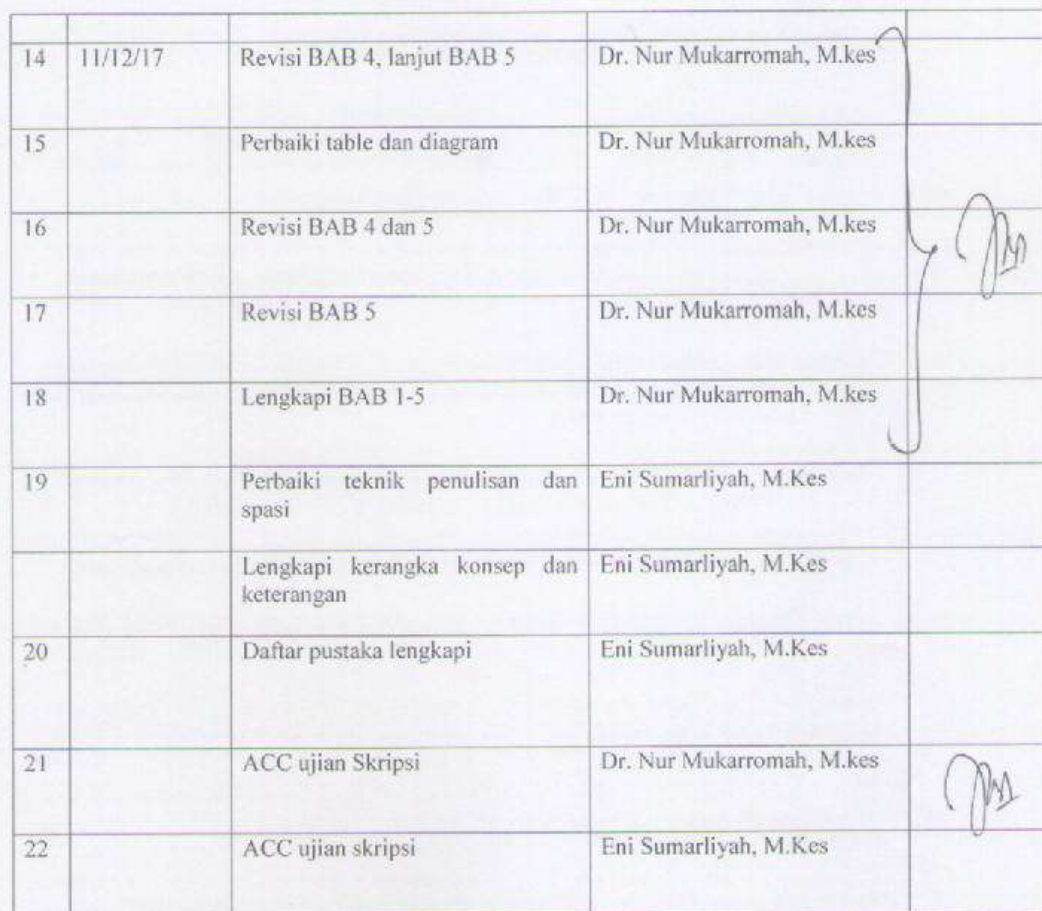 14 11/12/17 Revisi BAB 4, lanjut BAB 5 Dr. Nur Mukarromah, M.kes
15 Perbaiki table dan diagram Dr. Nur Mukarromah, M.kes
16 Revisi BAB 4 dan 5 Dr. Nur Mukarromah, M.kes
17 Revisi BAB 5 Dr. Nur Mukarromah, M.kes
18 Lengkapi BAB 1-5 Dr. Nur Mukarromah, M.kes
19 Perbaiki teknik penulisan dan Eni Sumarliyah, M.Kes
spasi
Lengkapi kerangka konsep dan Eni Sumarliyah, M.Kes
keterangan
20 Daftar pustaka lengkapi Eni Sumarliyah, M.Kes
21 ACC ujian Skripsi Dr. Nur Mukarromah, M.kes
22 ACC ujian skripsi Eni Sumarliyah, M.Kes